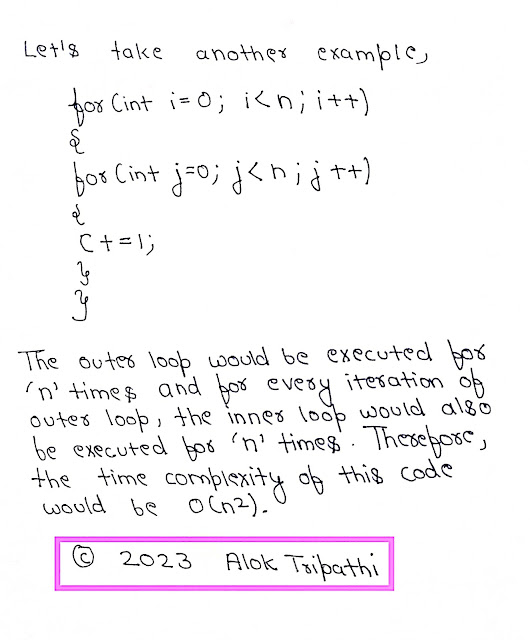 Let's take another example,
for (int i=0; i<n; i++)
{
for (int j=0; j<n; j++)
{
C+=1;
}
}
The outer loop would be executed for
'n' times and for every iteration of
outer loop, the inner loop would also
be executed for 'n' times. Therefore,
the time complexity of this code
would be O(n2).
© 2023 Alok Tripathi